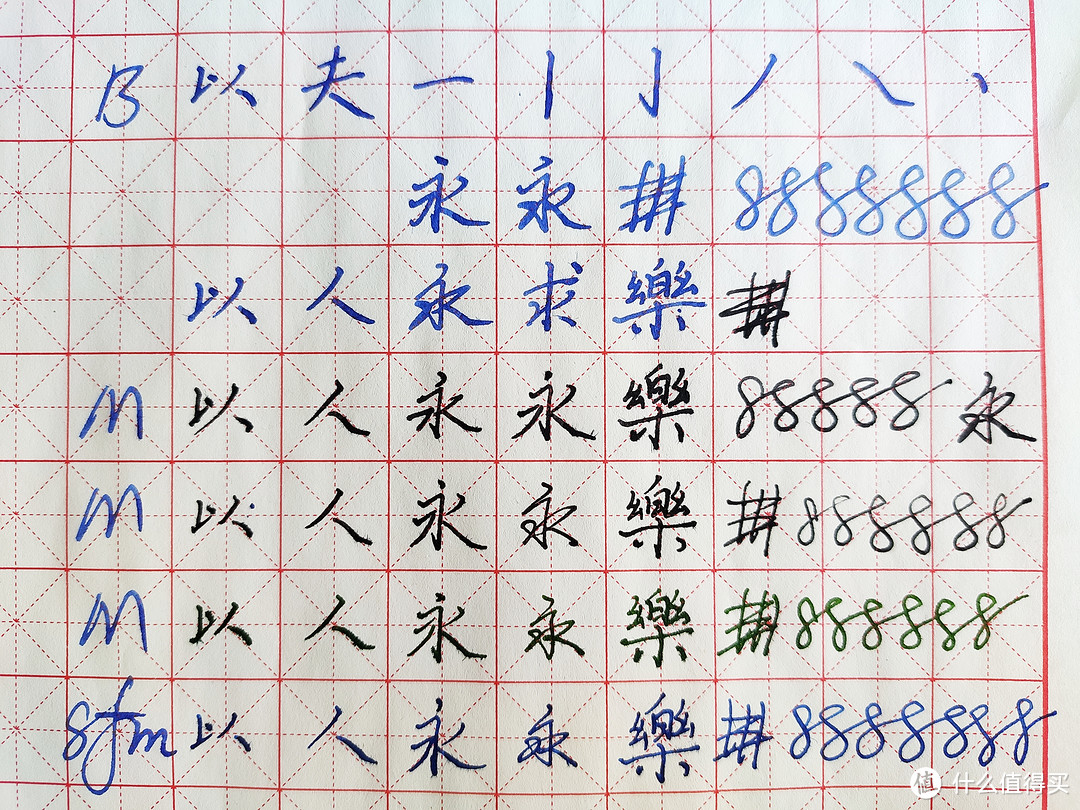 B 以 夫 一 丨 亅 丿 ㇏ 丶
永 永 8888888
以 人 永 求 樂
M 以 人 永 永 樂 88888 永
M 以 人 永 永 樂 888888
M 以 人 永 永 樂 888888
sfm 以 人 永 永 樂 8888888
值 什么值得买